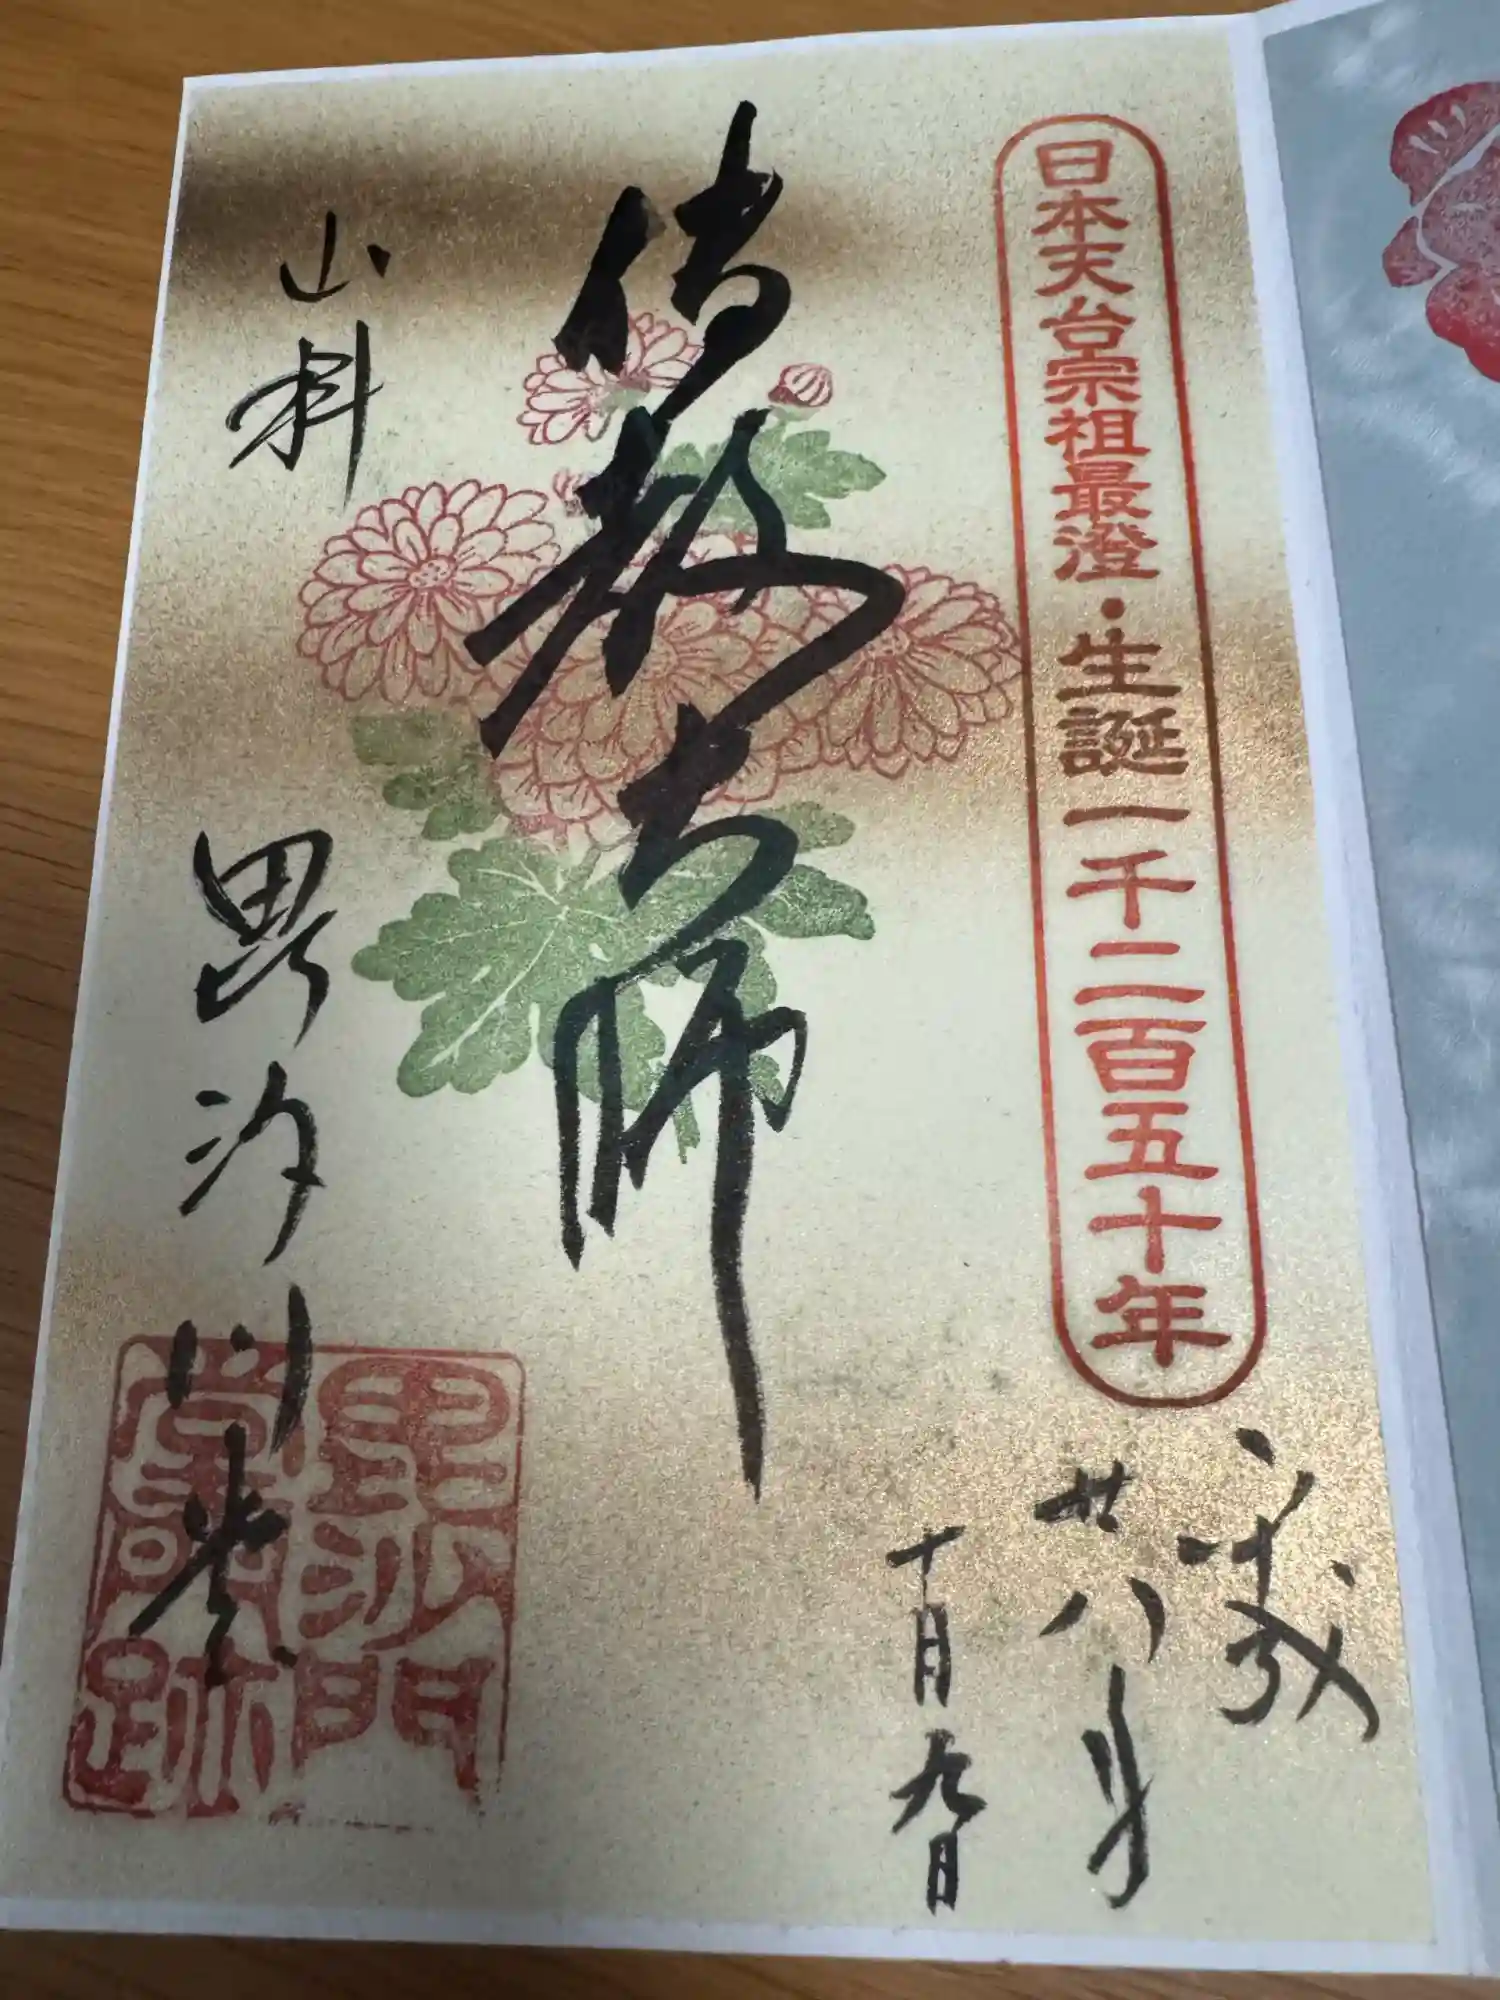 日本天台宗祖最澄・生誕一千二百五十年
平成
廿八年
十月九日
傳教大師
山科
毘沙門堂
毘沙門
堂 跡